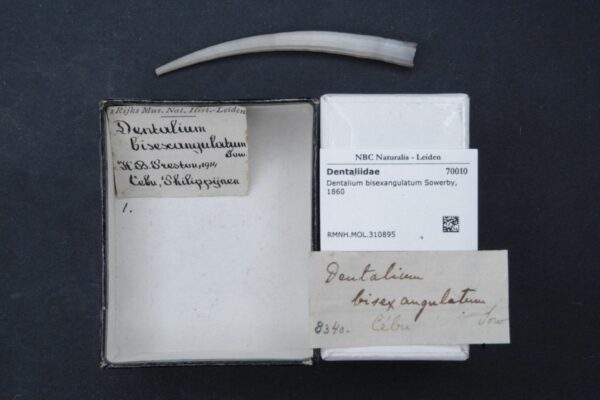 's Rijks Mus. Nat. Hist.-Leiden
Dentalium
bisexangulatum
Sow.
H.B. Preston, 1914
Cebu, Philippijnen
1.
NBC Naturalis - Leiden
Dentaliidae 70010
Dentalium bisexangulatum Sowerby,
1860
RMNH.MOL.310895
Dentalium
bisexangulatum
8340. Cébu Sow